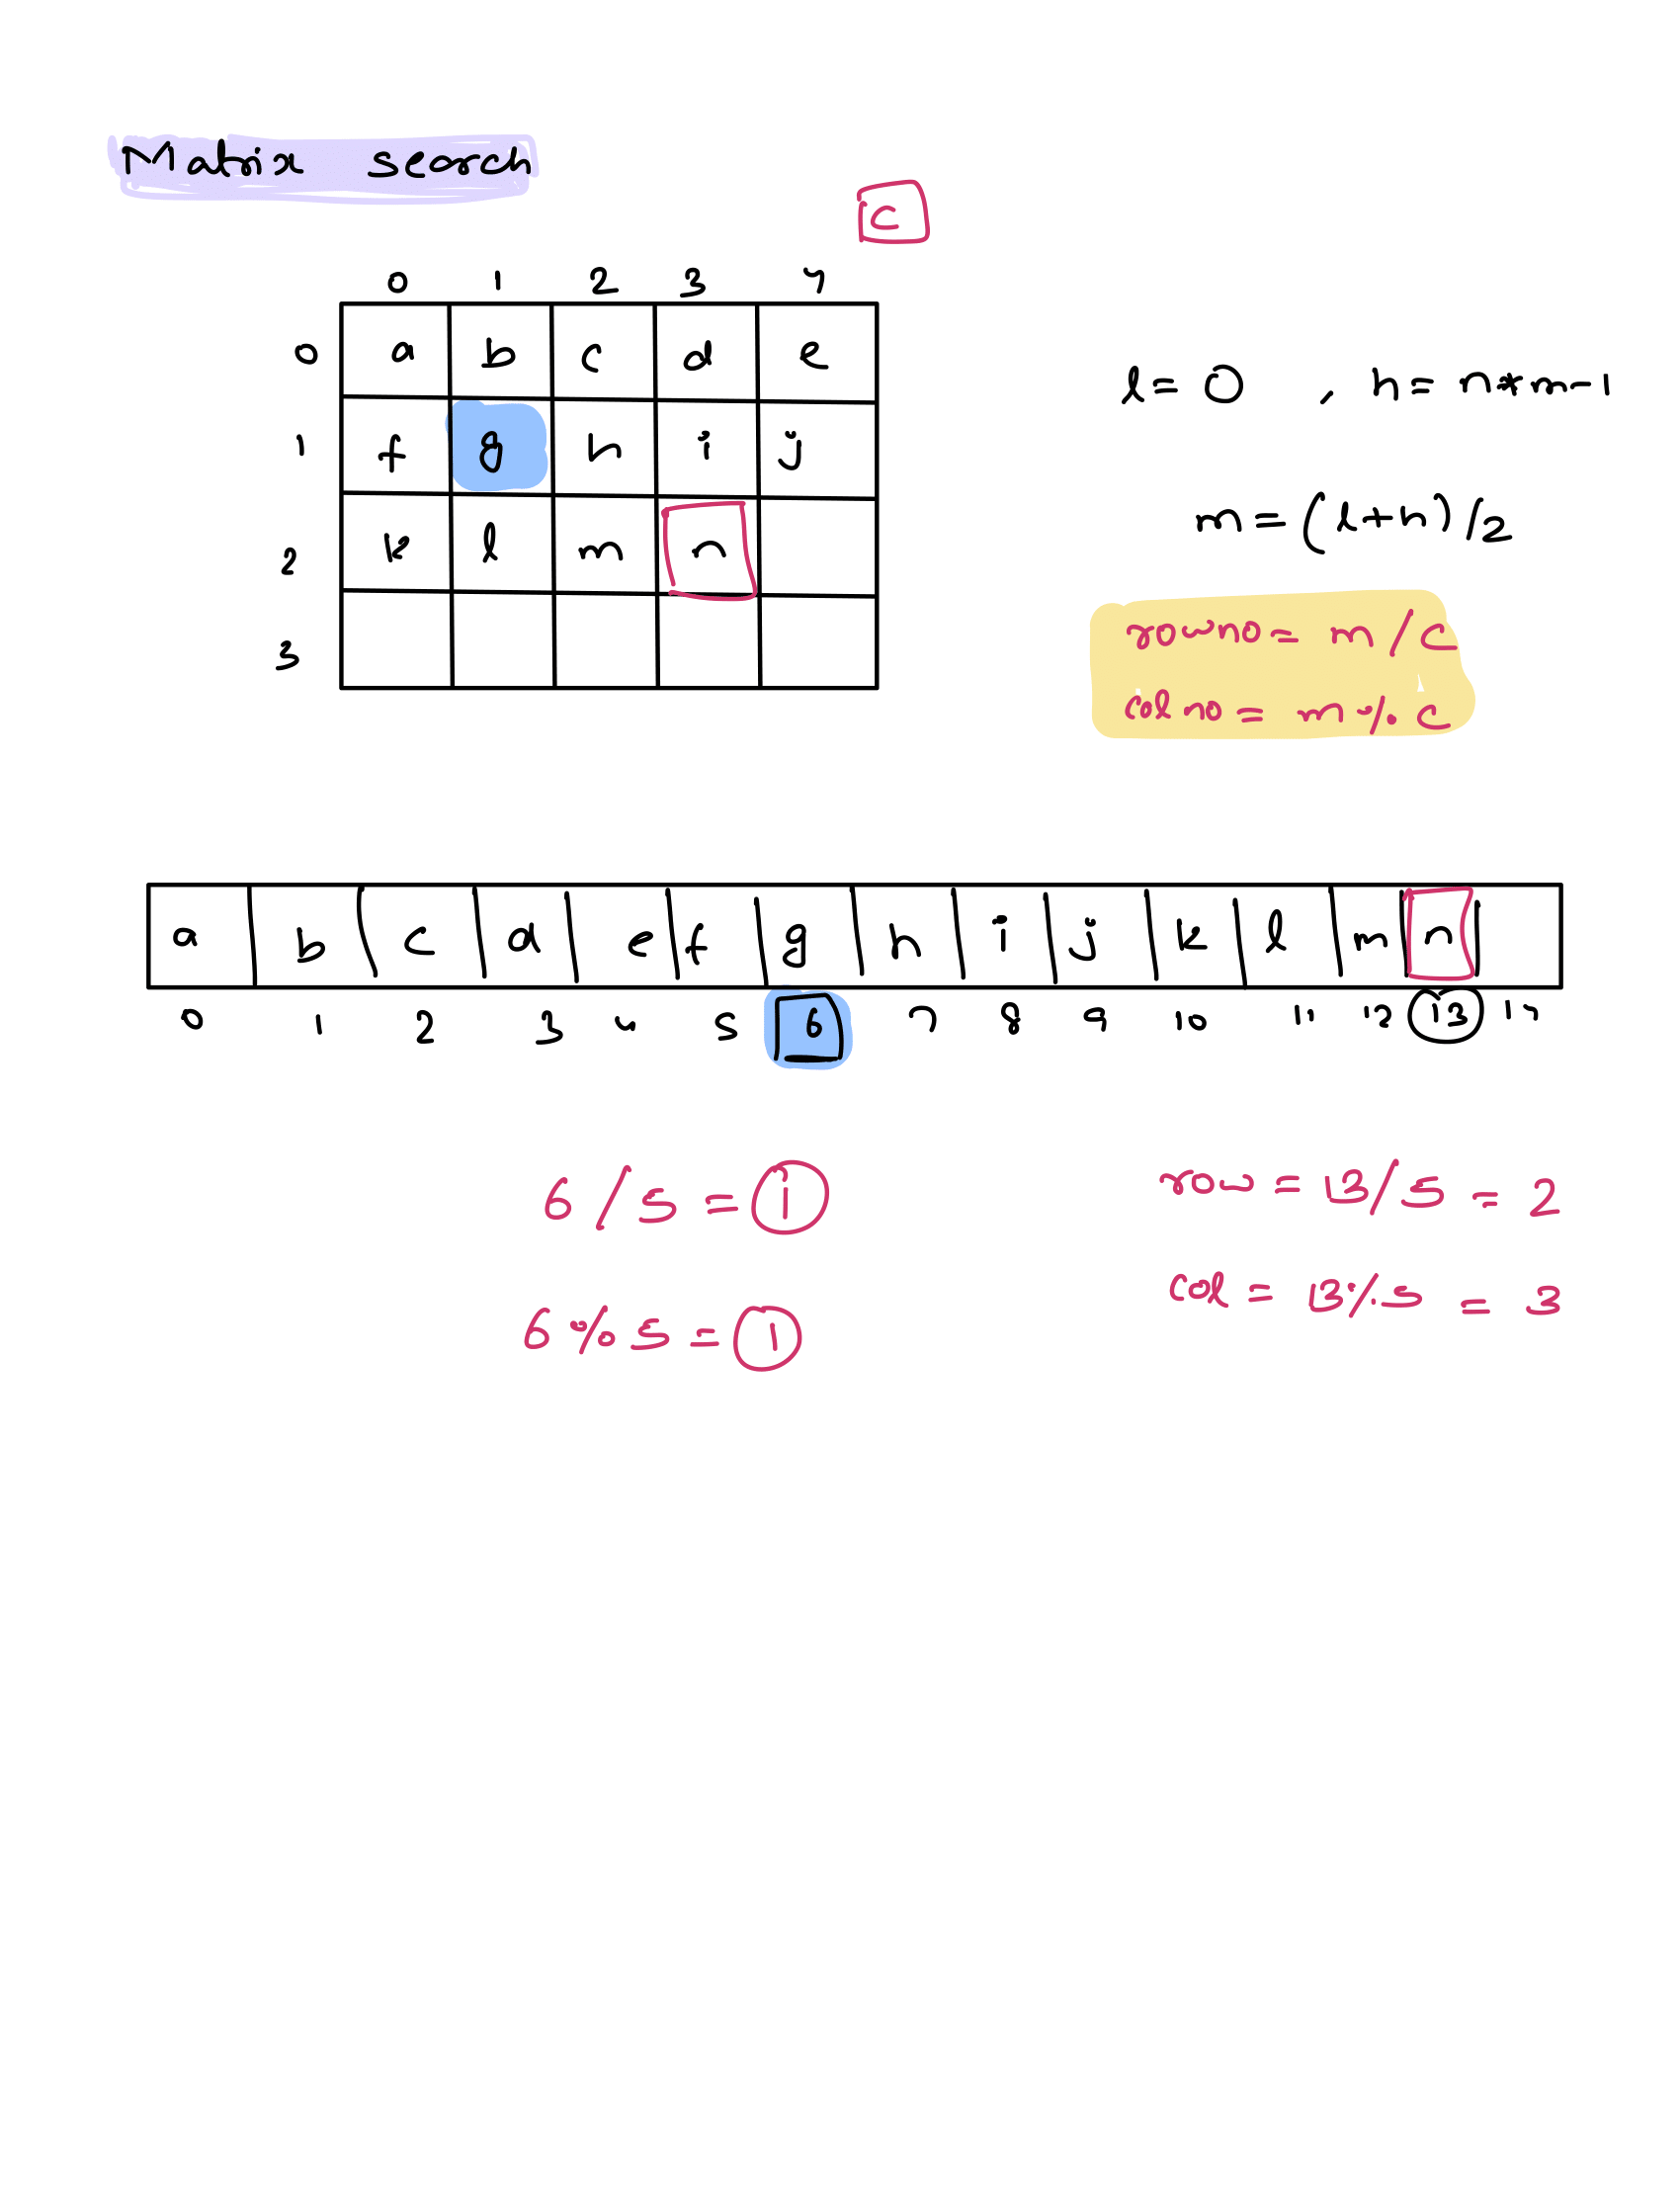 Matrix search
c
0 1 2 3 4
0 a b c d e
1 f g h i j
2 k l m n
3
l = 0 , h = n*m-1
m = (l+h)/2
row no = m/c
col no = m % c
a b c d e f g h i j k l m n
0 1 2 3 4 5 6 7 8 9 10 11 12 13 14
6/5 = 1
6 % 5 = 1
row = 13/5 = 2
col = 13 % 5 = 3